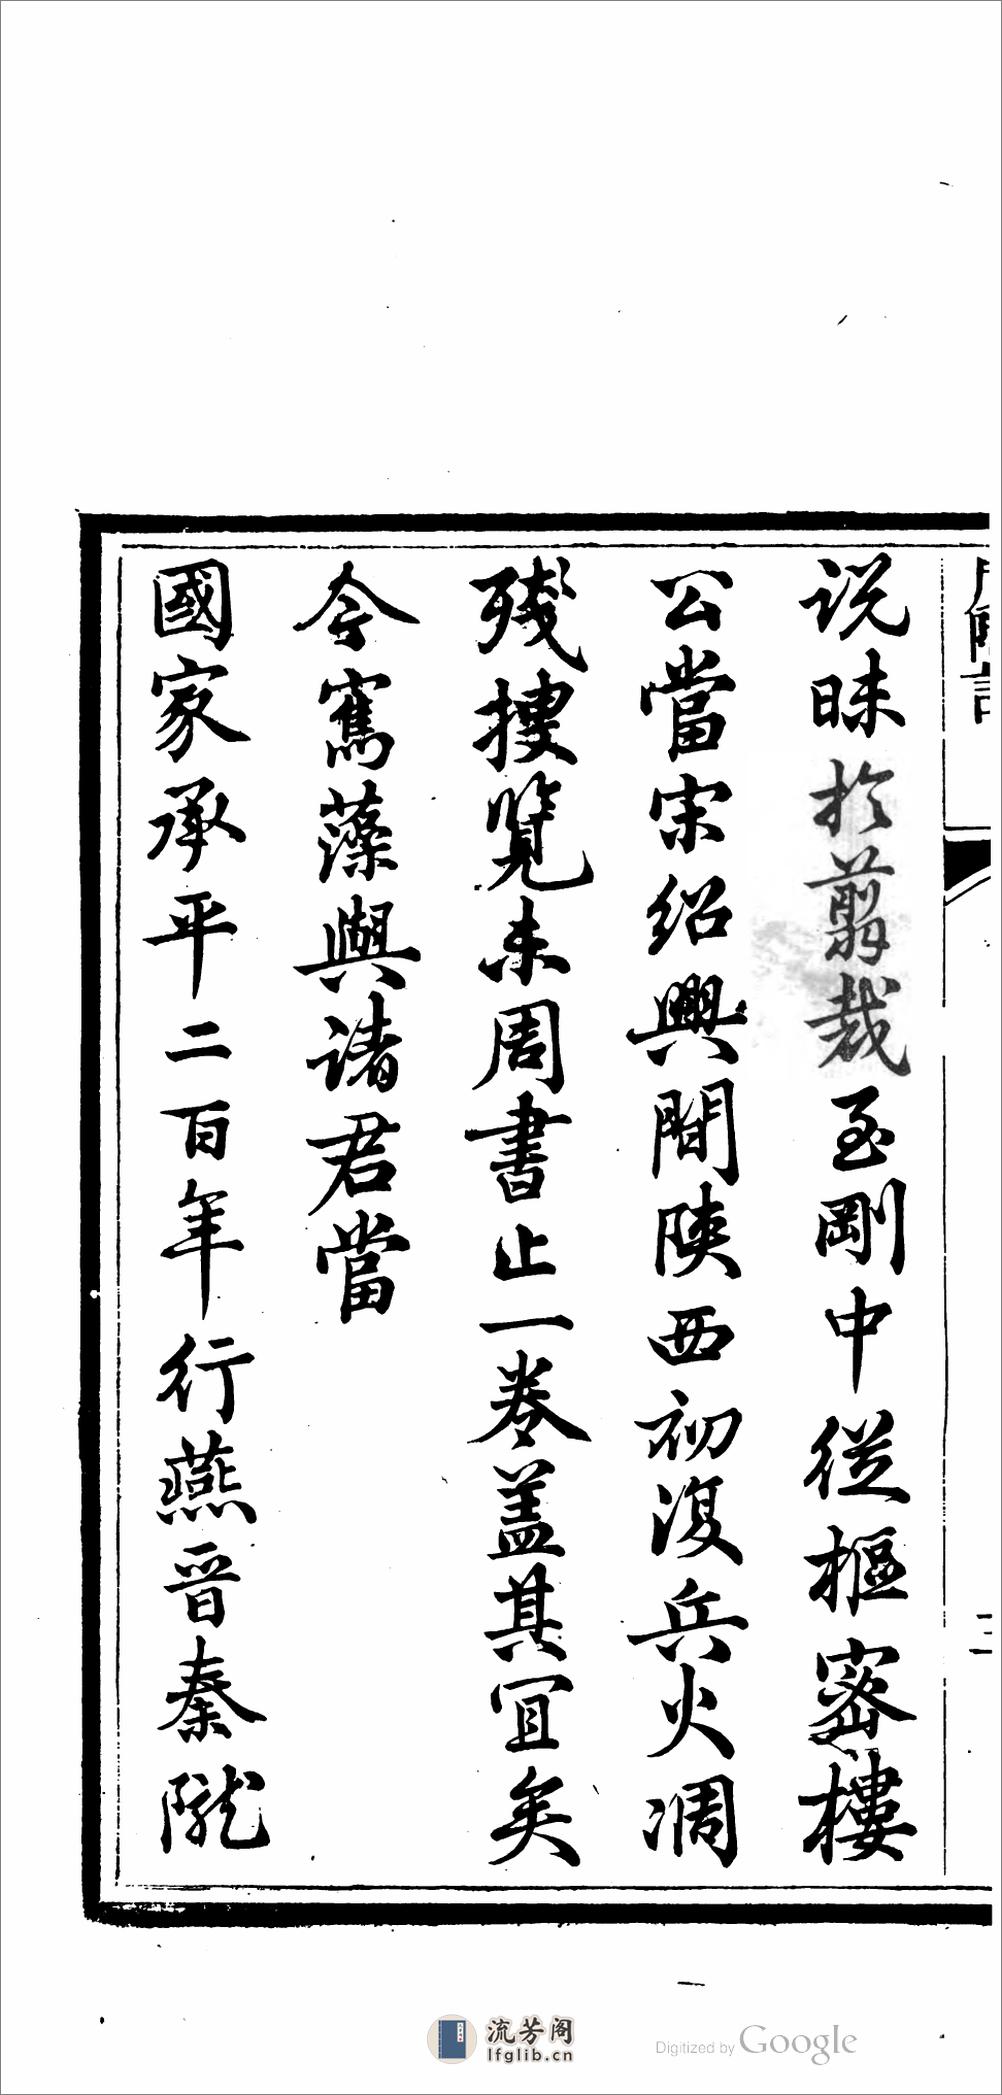 说昧於翦裁至剛中從樞密樓
公當宋紹興間陝西初復兵火凋
殘摟覽未周書止一卷盖其宜矣
今寯藻與諸君當
國家承平二百年行燕晉秦隴
流芳阁
lfglib.cn
Digitized by Google